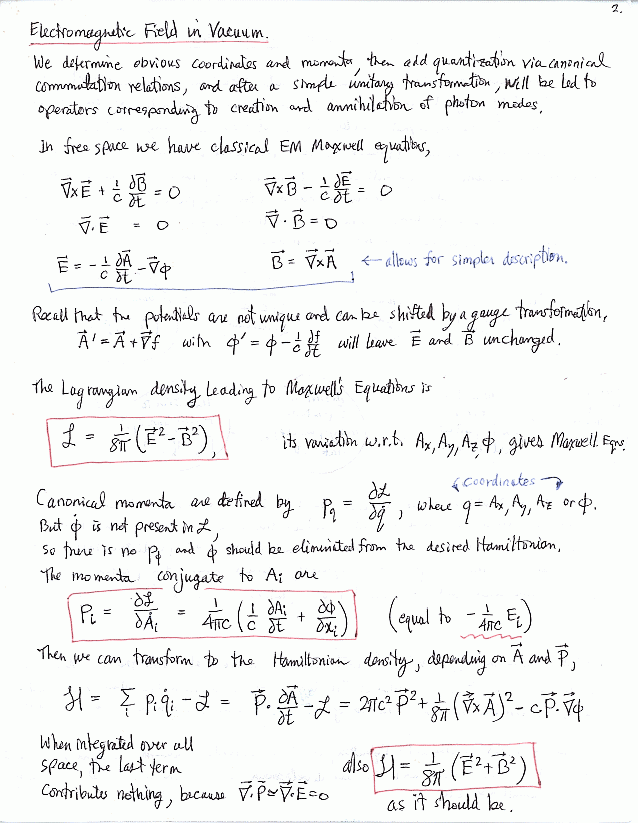 2.
Electromagnetic Field in Vacuum.
We determine obvious coordinates and momenta, then add quantization via canonical
commutation relations, and after a simple unitary transformation, will be led to
operators corresponding to creation and annihilation of photon modes.
In free space we have classical EM Maxwell equations,
∇⃗×E⃗ + 1/c ∂B⃗/∂t = 0    ∇⃗×B⃗ − 1/c ∂E⃗/∂t = 0
∇⃗·E⃗ = 0    ∇⃗·B⃗ = 0
E⃗ = −1/c ∂A⃗/∂t − ∇⃗φ    B⃗ = ∇⃗×A⃗ ← allows for simpler description.
Recall that the potentials are not unique and can be shifted by a gauge transformation,
A⃗' = A⃗ + ∇⃗f with φ' = φ − 1/c ∂f/∂t will leave E⃗ and B⃗ unchanged.
The Lagrangian density leading to Maxwell's Equations is
ℒ = 1/8π (E⃗² − B⃗²), its variation w.r.t. Ax, Ay, Az φ, gives Maxwell Eqns.
↙ coordinates ↘
Canonical momenta are defined by P_q = ∂ℒ/∂q̇, where q = Ax, Ay, Az or φ.
But φ̇ is not present in ℒ,
so there is no P_φ and φ should be eliminated from the desired Hamiltonian.
The momenta conjugate to Ai are
Pi = ∂ℒ/∂Ȧi = 1/4πc (1/c ∂Ai/∂t + ∂φ/∂xi) (equal to −1/4πc Ei)
Then we can transform to the Hamiltonian density, depending on A⃗ and P⃗,
ℋ = Σi pi q̇i − ℒ = P⃗·∂A⃗/∂t − ℒ = 2πc² P⃗² + 1/8π (∇⃗×A⃗)² − cP⃗·∇⃗φ
When integrated over all
space, the last term    also ℋ = 1/8π (E⃗² + B⃗²)
contributes nothing, because ∇⃗·P⃗ ≃ ∇⃗·E⃗ = 0    as it should be.